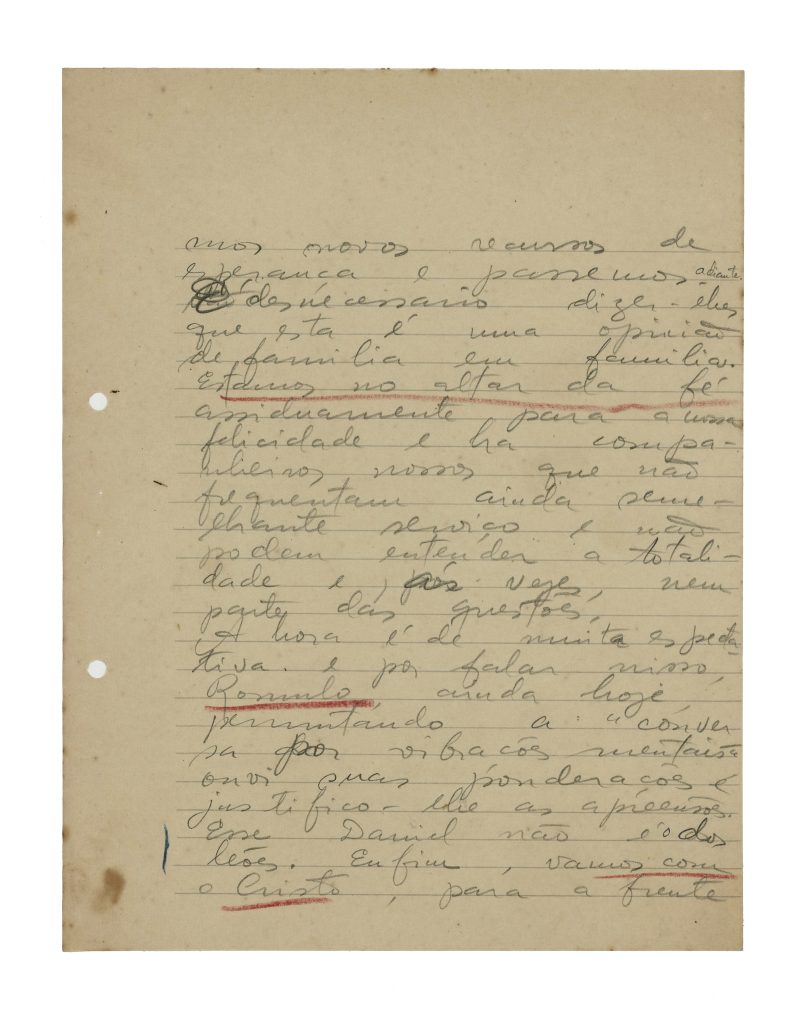 mos novos recursos de
esperança e passemos adiante.
É desnecessario dizer-lhes
que esta é uma opinião
de familia em familia.
Estamos no altar da fé
assiduamente para a nossa
felicidade e ha compa-
nheiros nossos que não
frequentam ainda seme-
lhante serviço e não
podem entender a totali-
dade e, ás vezes, nem
parte das questões.
A hora é de muita especta-
tiva. e por falar nisso,
Romulo, ainda hoje,
permutando a "conver
sa por vibrações mentais"
ouvi suas ponderações e
justifico-lhe as apreensões.
Esse Daniel não é o dos
leões. Enfim, vamos com
o Cristo, para a frente